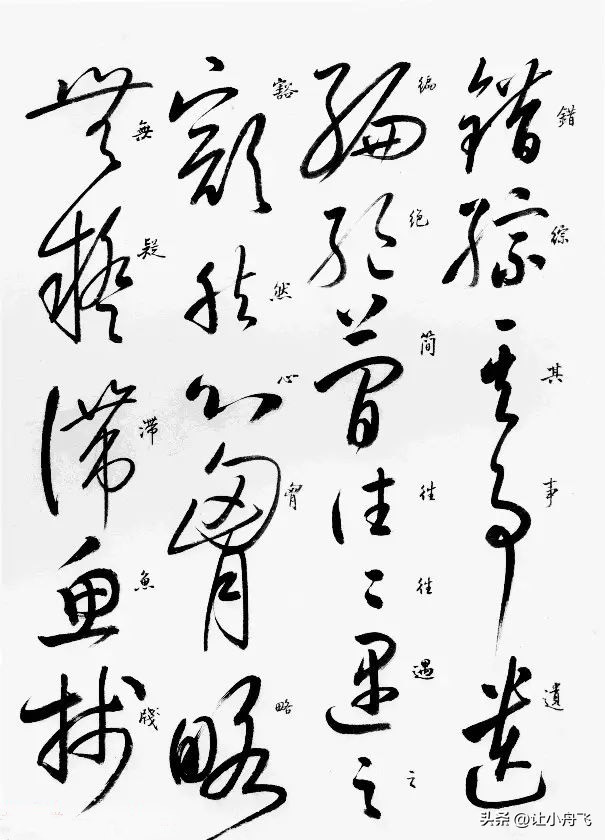 錯綜其事遺
編绝简往往遇之
豁然心胷略
無疑滞魚牋
头条 @让小舟飞